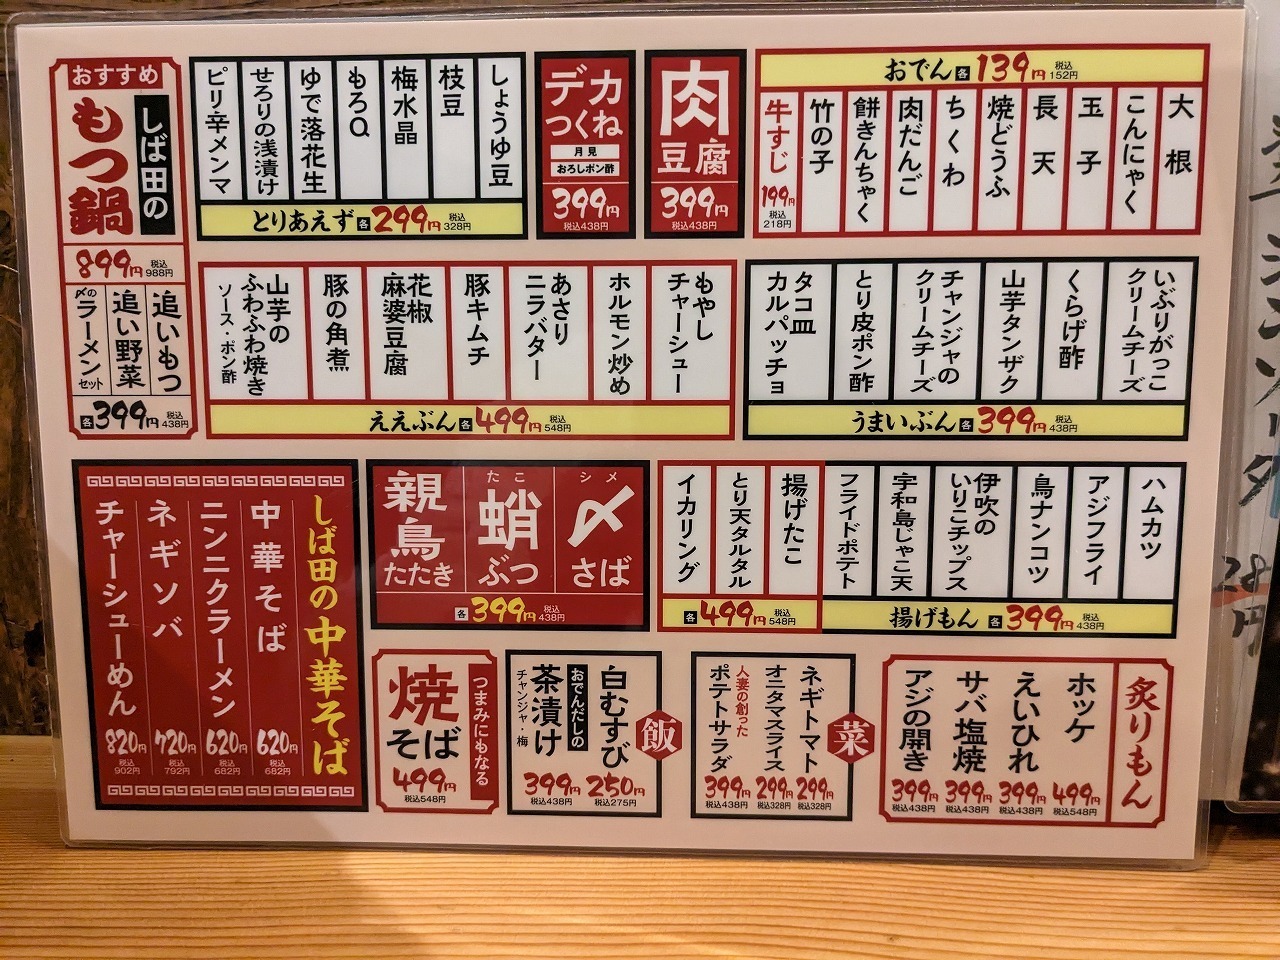 おすすめ
しば田の
もつ鍋
899円 税込988円
追いもつ
追い野菜
〆のラーメンセット
各399円 税込438円
しょうゆ豆
枝豆
梅水晶
もろQ
ゆで落花生
せろりの浅漬け
ピリ辛メンマ
とりあえず 各299円 税込328円
デカつくね
月見
おろしポン酢
399円
税込438円
肉豆腐
399円
税込438円
おでん 各139円 税込152円
大根
こんにゃく
玉子
長天
焼どうふ
ちくわ
肉だんご
餅きんちゃく
竹の子
牛すじ
199円
税込218円
もやしチャーシュー
ホルモン炒め
あさりニラバター
豚キムチ
花椒麻婆豆腐
豚の角煮
山芋のふわふわ焼き
ソース・ポン酢
ええぶん 各499円 税込548円
いぶりがっこクリームチーズ
くらげ酢
山芋タンザク
チャンジャのクリームチーズ
とり皮ポン酢
タコ皿カルパッチョ
うまいぶん 各399円 税込438円
しば田の中華そば
中華そば
620円
税込682円
ニンニクラーメン
620円
税込682円
ネギソバ
720円
税込792円
チャーシューめん
820円
税込902円
シメ
〆さば
たこ
蛸ぶつ
親鳥たたき
各399円 税込438円
揚げたこ
とり天タルタル
イカリング
各499円 税込548円
ハムカツ
アジフライ
鳥ナンコツ
伊吹のいりこチップス
宇和島じゃこ天
フライドポテト
揚げもん 各399円 税込438円
つまみにもなる
焼そば
499円
税込548円
飯
白むすび
250円
税込275円
おでんだしの
茶漬け
チャンジャ・梅
399円
税込438円
菜
ネギトマト
299円
税込328円
オニタマスライス
299円
税込328円
人妻の創った
ポテトサラダ
399円
税込438円
炙りもん
ホッケ
499円
税込548円
えいひれ
399円
税込438円
サバ塩焼
399円
税込438円
アジの開き
399円
税込438円